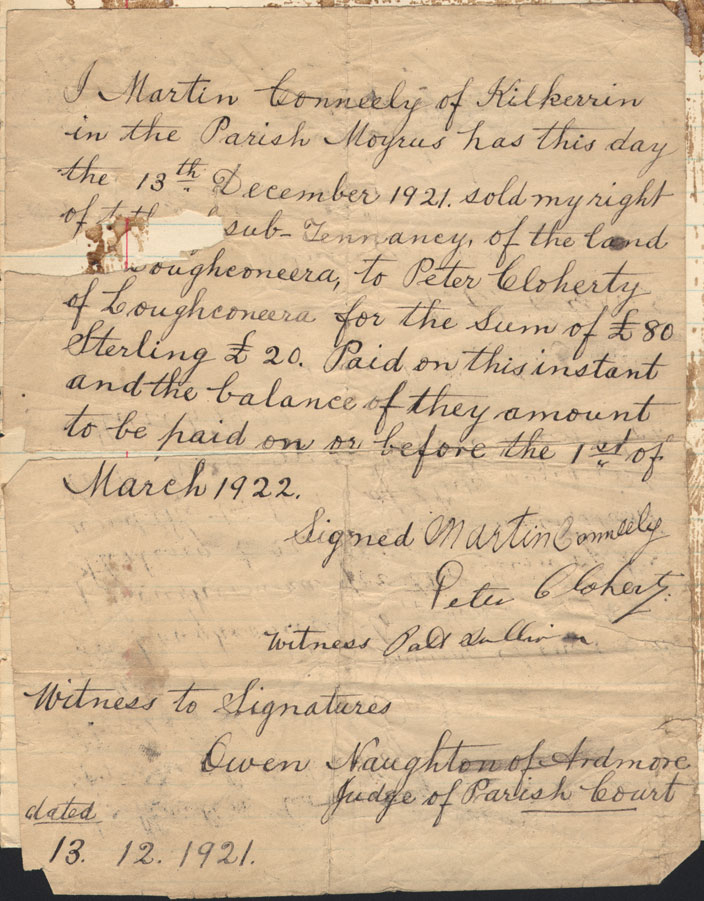 I Martin Conneely of Kilkerrin
in the Parish Moyrus has this day
the 13th December 1921. sold my right
of sub-Tennancy, of the land
oughconeera, to Peter Cloherty
of Loughconeera for the sum of £80
Sterling £20. Paid on this instant
and the balance of they amount
to be paid on or before the 1st of
March 1922.
Signed Martin Conneely
Peter Cloherty
Witness Patk Sullivan
Witness to Signatures
Owen Naughton of Ardmore
Judge of Parish Court
dated
13. 12. 1921.